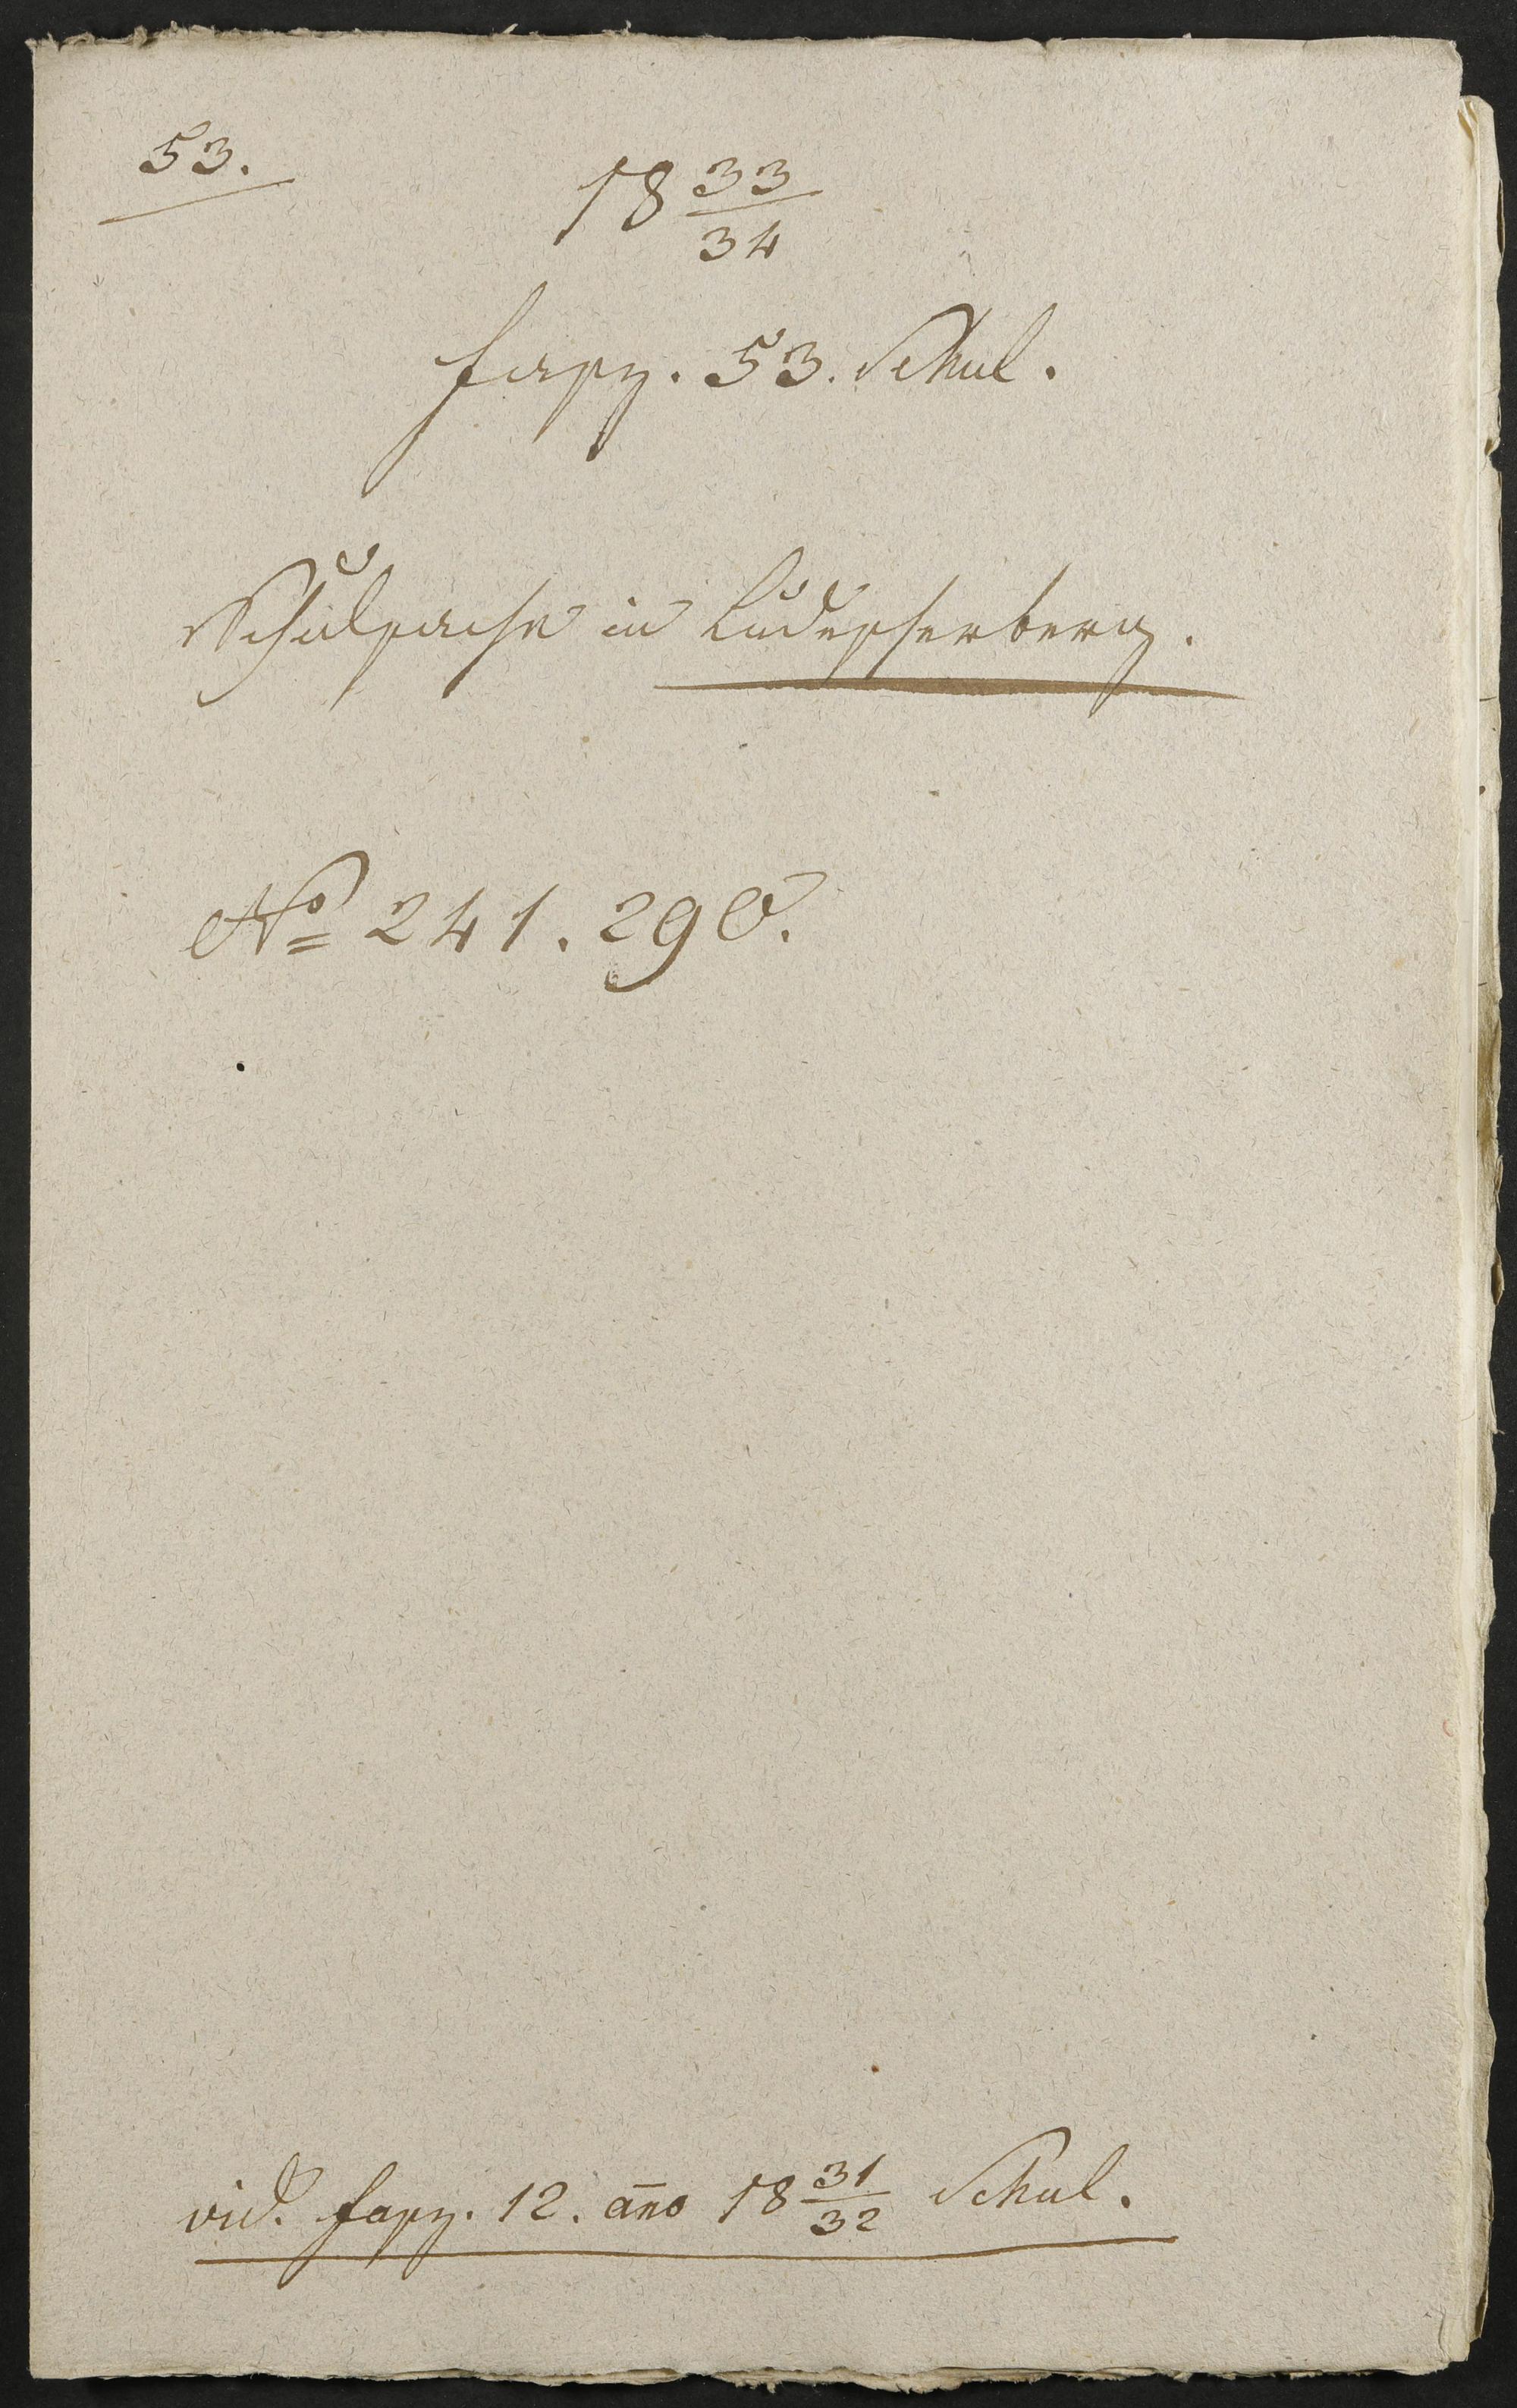 53.
18 33/34
fasz. 53. Schul.
Schulsache in Ludescherberg.
No 241. 290.
vid. fasz. 12. año 18 31/32 Schul.